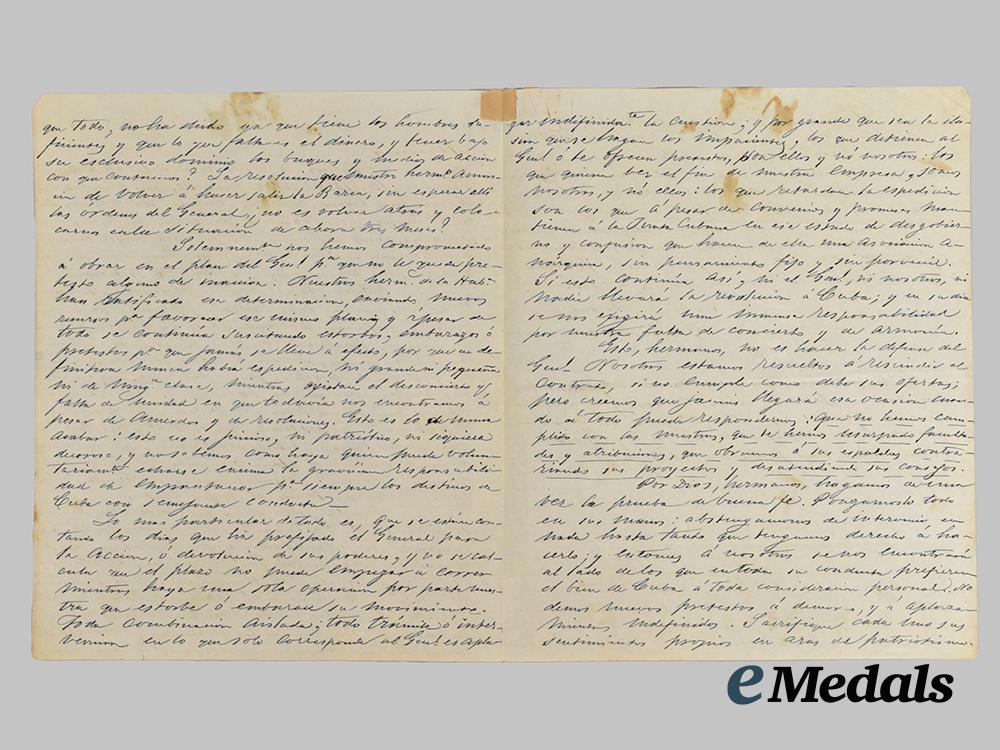 que todo, no ha dicho ya que tiene los hombres su-
ficientes y que lo que falta es el dinero, y tener bajo
su esclusivo dominio los buques y medios de accion
con que contamos? La resolucion que nuestro herm.º
cia de volver á hacer salir la Barca, sin esperar allá
las órdenes del General, no es volver atrás y colo-
carnos en la situacion de ahora tres meses?
Solemnemte nos hemos comprometido
á obrar en el plan del Genl pa que no le quede pre-
testo alguno de inaccion. Nuestros hermos de la Haba
han ratificado esa determinacion, enviando nuevos
recursos pa favorecer ese mismo plan; y á pesar de
todo se continúa suscitando estorbos, embarazos ó
pretestos pa que jamás se lleve á efecto, por que en de-
finitiva nunca habrá espedicion, ni grande ni pequeña
ni de ninga clase, mientras existan el desconcierto y
falta de unidad en que todavia nos encontramos á
pesar de acuerdos y de resoluciones. Esto es lo de nunca
acabar: esto no es juicioso, ni patriotico, ni siquiera
decoroso, y no sabemos como haya quien pueda volun-
tariamte echarse encima la gravísima responsabili-
dad de empantanar pa siempre los destinos de
Cuba con semejante conducta—
Lo mas particular de todo es, que se están con-
tando los dias que ha prefijado el General para
la accion, ó devolucion de sus poderes, y no se cal-
cula que el plazo no puede empezar á correr
mientras haya una sola operacion por parte nues-
tra que estorbe ó embarace su movimiento.
Toda combinacion aislada; todo trámite ó inter-
vencion en lo que solo corresponde al Genl es apla-
zar indefinidate la cuestion; y por grande que sea la ilu-
sion que se hagan los impacientes, los que detienen al
Genl ó le ofrecen pretestos, son ellos y nó nosotros: los
que quieren ver el fin de nuestra empresa, somos
nosotros, y nó ellos: los que retardan la espedicion
son los que á pesar de convenios y promesas man-
tienen á la Junta Cubana en ese estado de desgobier-
no y confusion que hacen de ella una asociacion a-
nárquica, sin pensamiento fijo y sin porvenir.
Si esto continúa así, ni el Genl, ni nosotros, ni
nadie llevará la revolucion á Cuba; y en su dia
se nos exigirá una inmensa responsabilidad
por nuestra falta de concierto y de armonía.
Esto, hermanos, no es hacer la defensa del
Genl— Nosotros estamos resueltos á rescindir el
contrato, si no cumple como debe sus ofertas;
pero creemos que jamás llegará esa ocasion cuan-
do á todo pueda respondernos: que no hemos cum-
plido con las nuestras, que se hemos usurpado faculta-
des y atribuciones, que obramos á sus espaldas contra-
riando sus proyectos y desatendiendo sus consejos.
Por Dios, hermanos, hagamos de una
vez la prueba de buena fe. Pongamoslo todo
en sus manos: abstengamonos de intervenir en
nada hasta tanto que tengamos derecho á ha-
cerlo; y entonces á nosotros se nos encontrará
al lado de los que en toda su conducta prefieren
el bien de Cuba á toda consideracion personal. No
demos nuevos pretestos á demoras, y á aplaza-
mientos indefinidos. Sacrifique cada uno sus
sentimientos propios en aras de patriotismo
eMedals